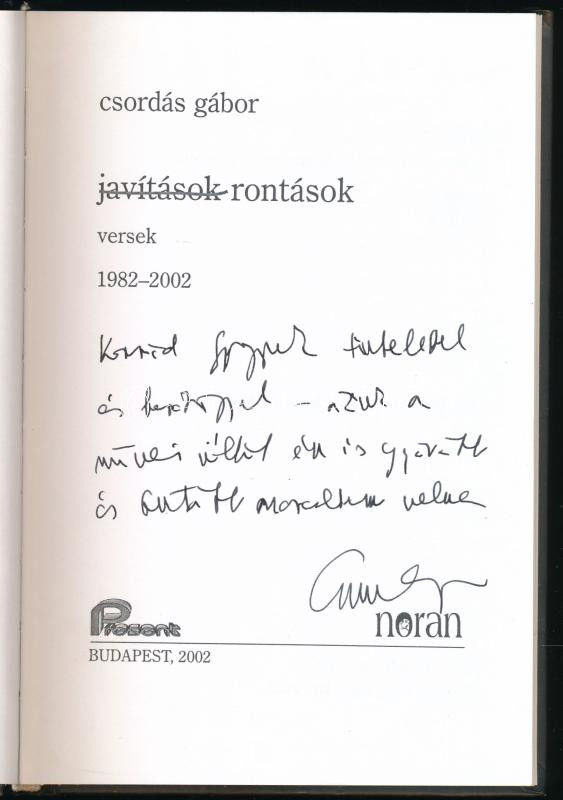 csordás gábor
javítások rontások
versek
1982–2002
Konrád Györgynek tisztelettel
és barátsággal – akinek a
művei nélkül én is gyávább
és butább maradtam volna
Present
noran
BUDAPEST, 2002